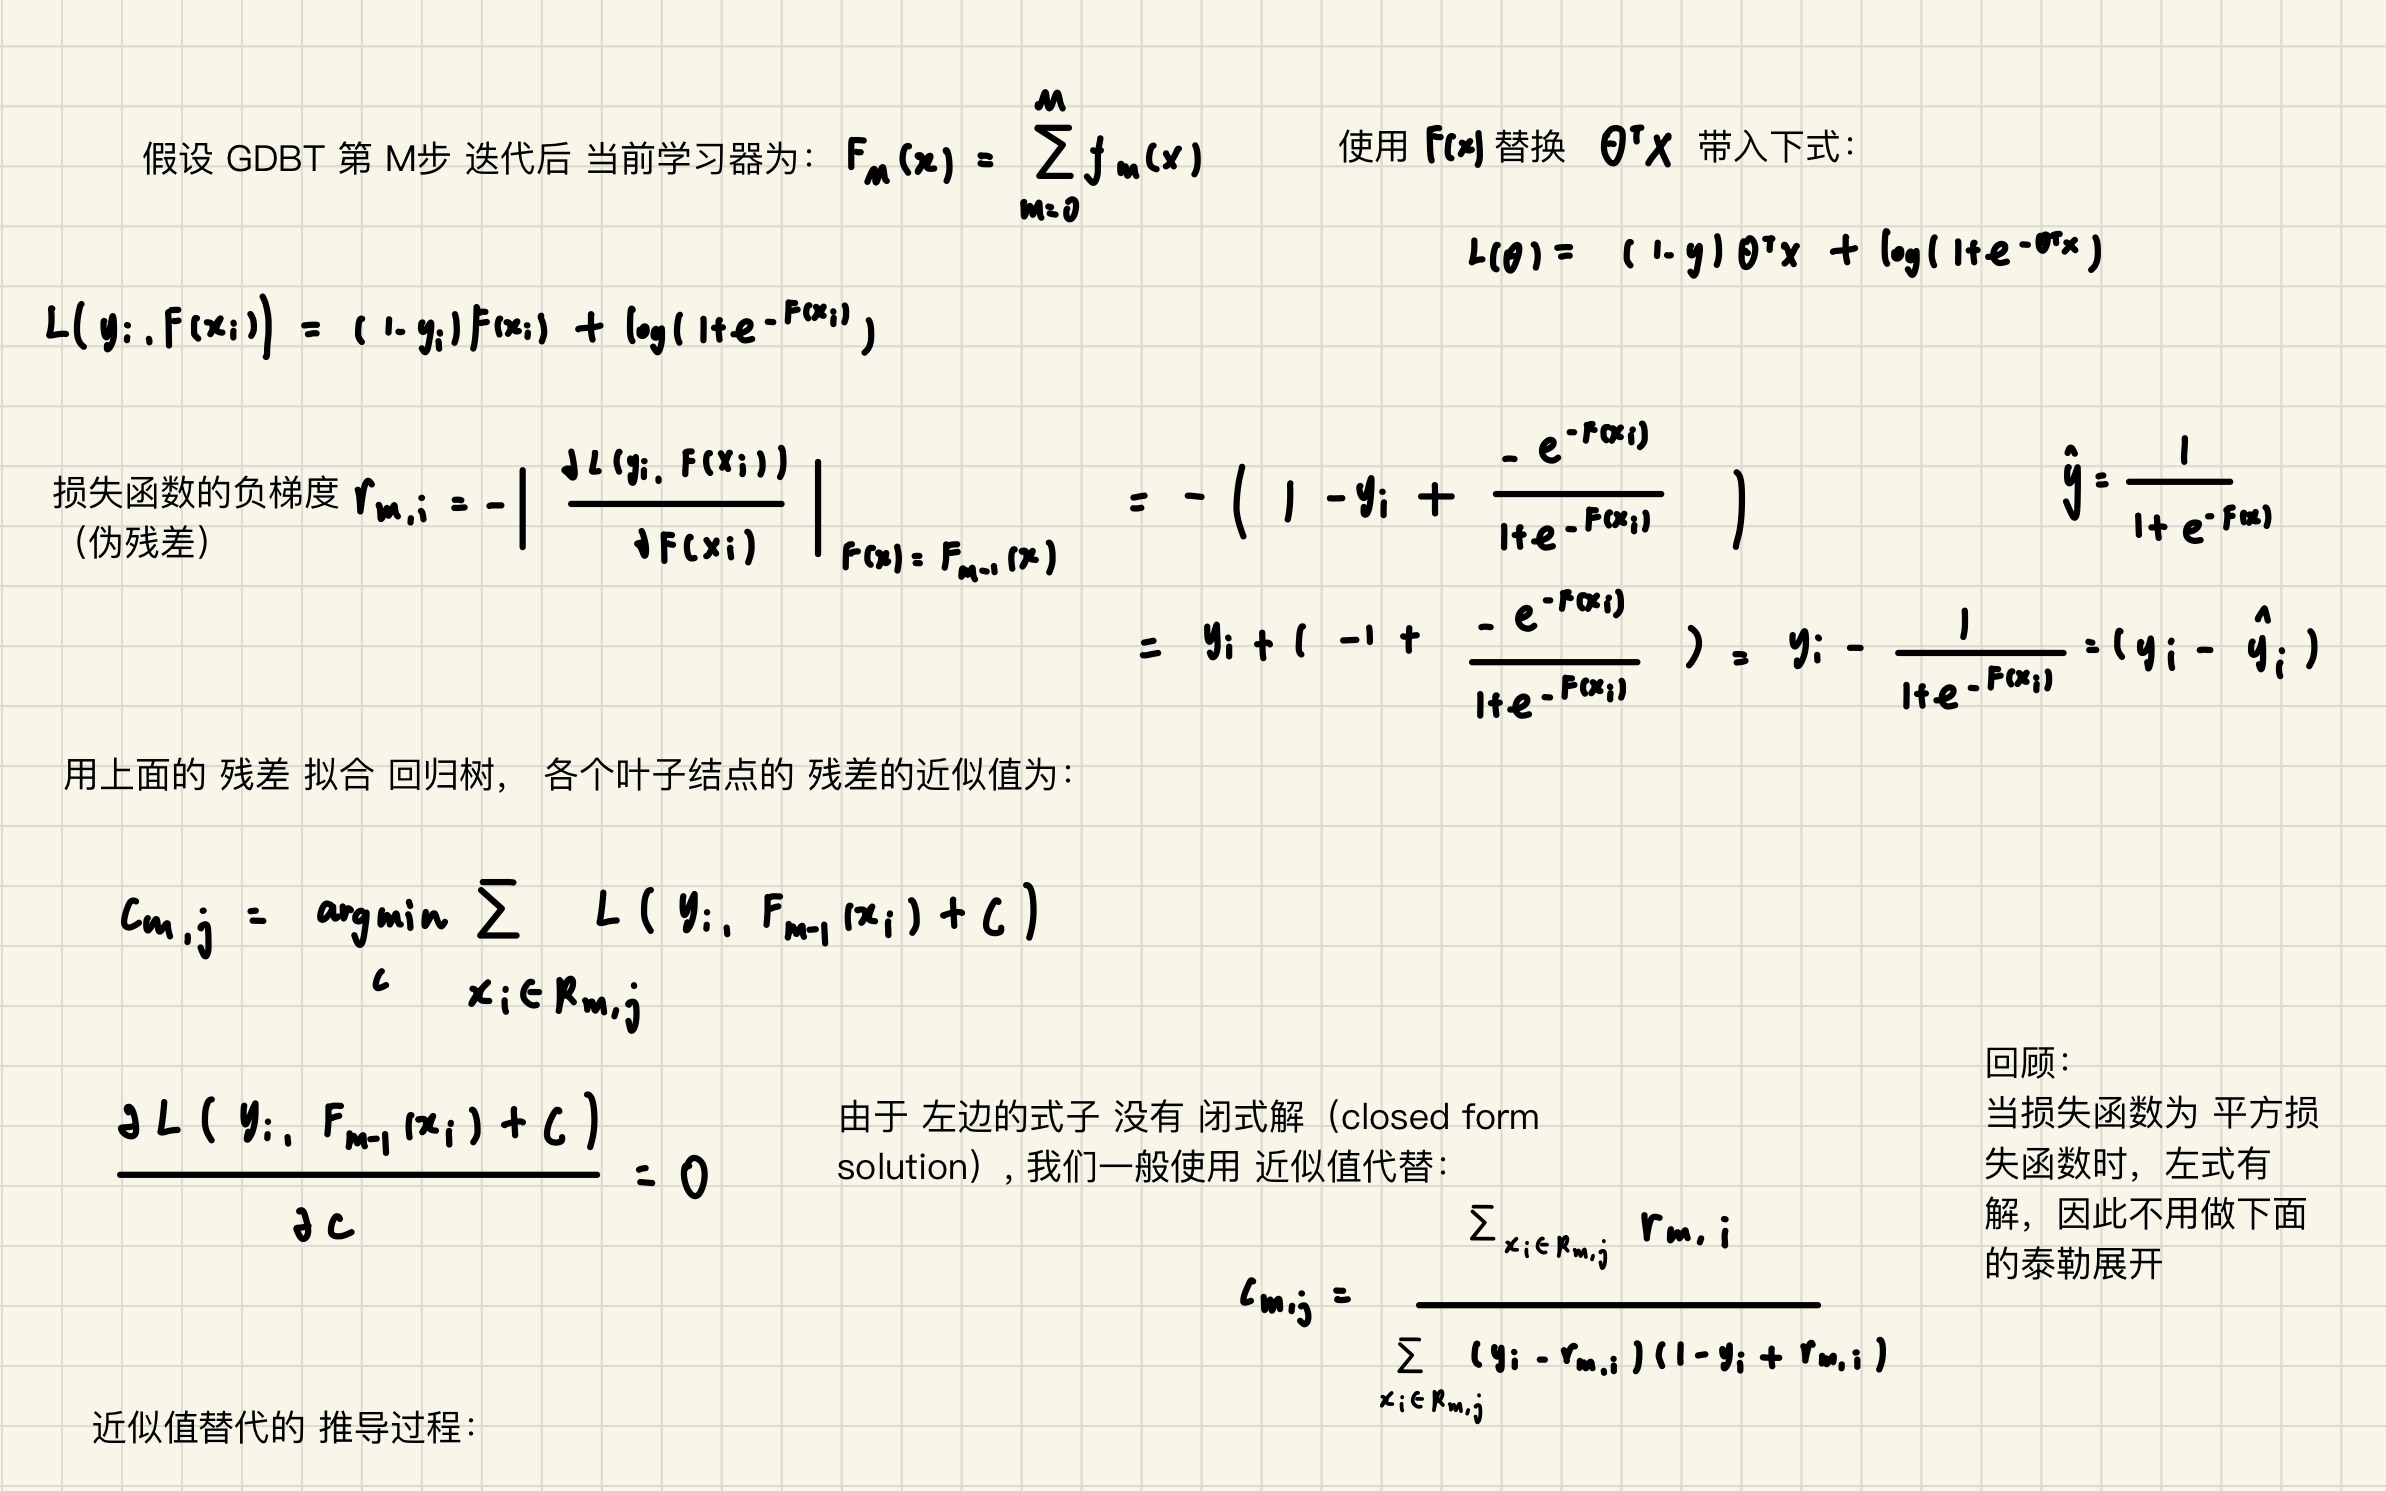 假设 GDBT 第 M步 迭代后 当前学习器为： F_M(x) = \sum_{m=0}^{M} f_m(x)
使用 F(x) 替换 θ^T X 带入下式：
L(θ) = (1-y) θ^T x + log(1+e^{-θ^T x})
L(y_i, F(x_i)) = (1-y_i)F(x_i) + log(1+e^{-F(x_i)})
损失函数的负梯度
（伪残差）
r_{m,i} = -| ∂L(y_i, F(x_i)) / ∂F(x_i) |_{F(x) = F_{m-1}(x)} = -( 1 - y_i + (-e^{-F(x_i)}) / (1+e^{-F(x_i)}) )
ŷ = 1 / (1+e^{-F(x)})
= y_i + ( -1 + (-e^{-F(x_i)}) / (1+e^{-F(x_i)}) ) = y_i - 1 / (1+e^{-F(x_i)}) = (y_i - ŷ_i)
用上面的 残差 拟合 回归树， 各个叶子结点的 残差的近似值为：
c_{m,j} = argmin_c \sum_{x_i ∈ R_{m,j}} L(y_i, F_{m-1}(x_i) + c)
∂L(y_i, F_{m-1}(x_i) + c) / ∂c = 0
由于 左边的式子 没有 闭式解（closed form
solution）, 我们一般使用 近似值代替：
c_{m,j} = \sum_{x_i ∈ R_{m,j}} r_{m,i} / \sum_{x_i ∈ R_{m,j}} (y_i - r_{m,i})(1 - y_i + r_{m,i})
回顾：
当损失函数为 平方损
失函数时，左式有
解，因此不用做下面
的泰勒展开
近似值替代的 推导过程：